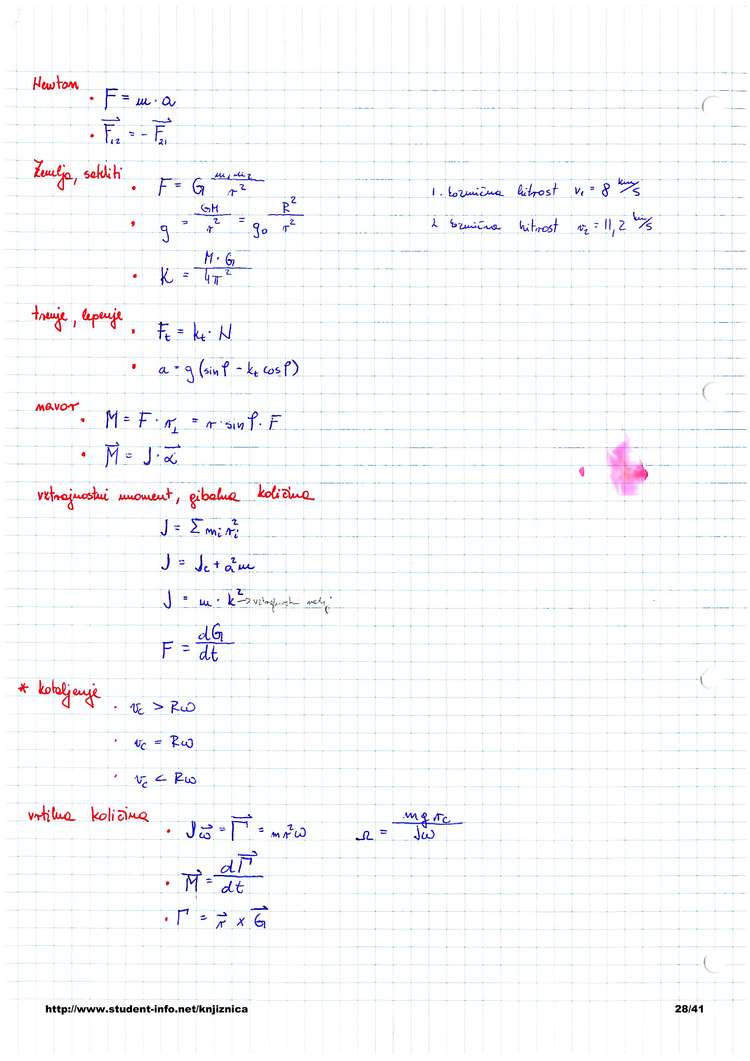 Newton
• F = m · a
• F⃗₁₂ = - F⃗₂₁
Zemlja, sateliti
• F = G m₁m₂/r²
1. kozmična hitrost v₁ = 8 km/s
• g = GM/r² = g₀ R²/r²
2. kozmična hitrost v₂ = 11,2 km/s
• K = M·G/4π²
trenje, lepenje
• Fₜ = kₜ · N
• a = g (sin φ - kₜ cos φ)
navor
• M = F · r⊥ = r · sin φ · F
• M⃗ = J · α⃗
vztrajnostni moment, gibalna količina
J = Σ mᵢ rᵢ²
J = J_c + a²m
J = m · k² →
F = dG/dt
* kotaljenje
• v_c > Rω
• v_c = Rω
• v_c < Rω
vrtilna količina
• Jω⃗ = Γ⃗ = mr²ω Ω = mgr_c/Jω
• M⃗ = dΓ⃗/dt
• Γ = r⃗ × G⃗
http://www.student-info.net/knjiznica
28/41